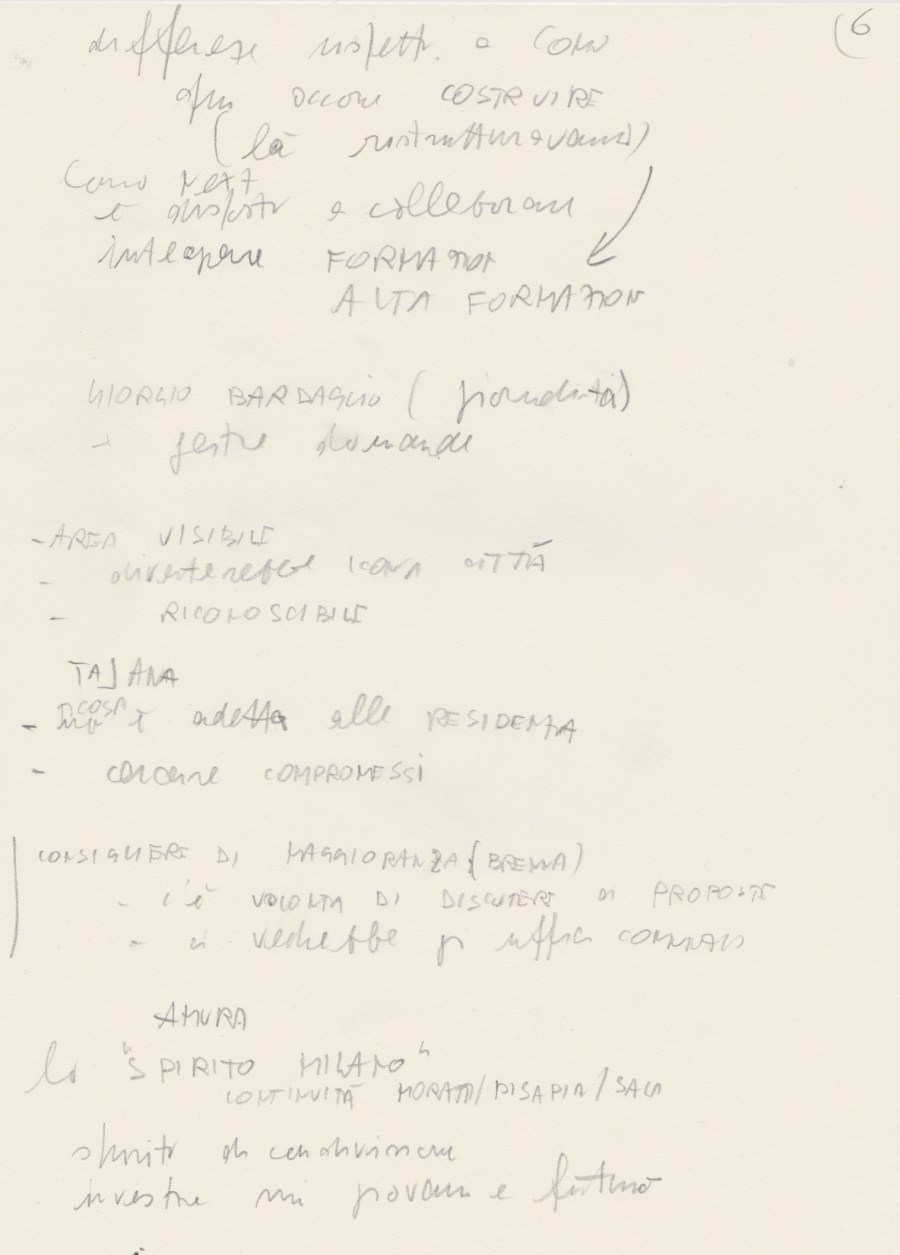 6
differenze rispetto a COMO
qui occorre COSTRUIRE
(là ristrutturavano)
Como NEXT
è disposto a collaborare
integrare FORMAZION
ALTA FORMAZION
GIORGIO BARDAGLIO (giornalista)
gestire domande
- AREA VISIBILE
- diventerebbe ICONA CITTÀ
- RICONOSCIBILE
TAJANA
- COSA è adatta alle RESIDENZA
- cercare COMPROMESSI
CONSIGLIERE DI MAGGIORANZA (BRENNA)
- C'È VOLONTA DI DISCUTERE DI PROPOSTE
- ci vedrebbe gli uffici COMUNALI
AMURA
lo "SPIRITO MILANO"
CONTINUITÀ MORATTI/PISAPIA/SALA
spirito di condivisione
investire nei giovani e futuro